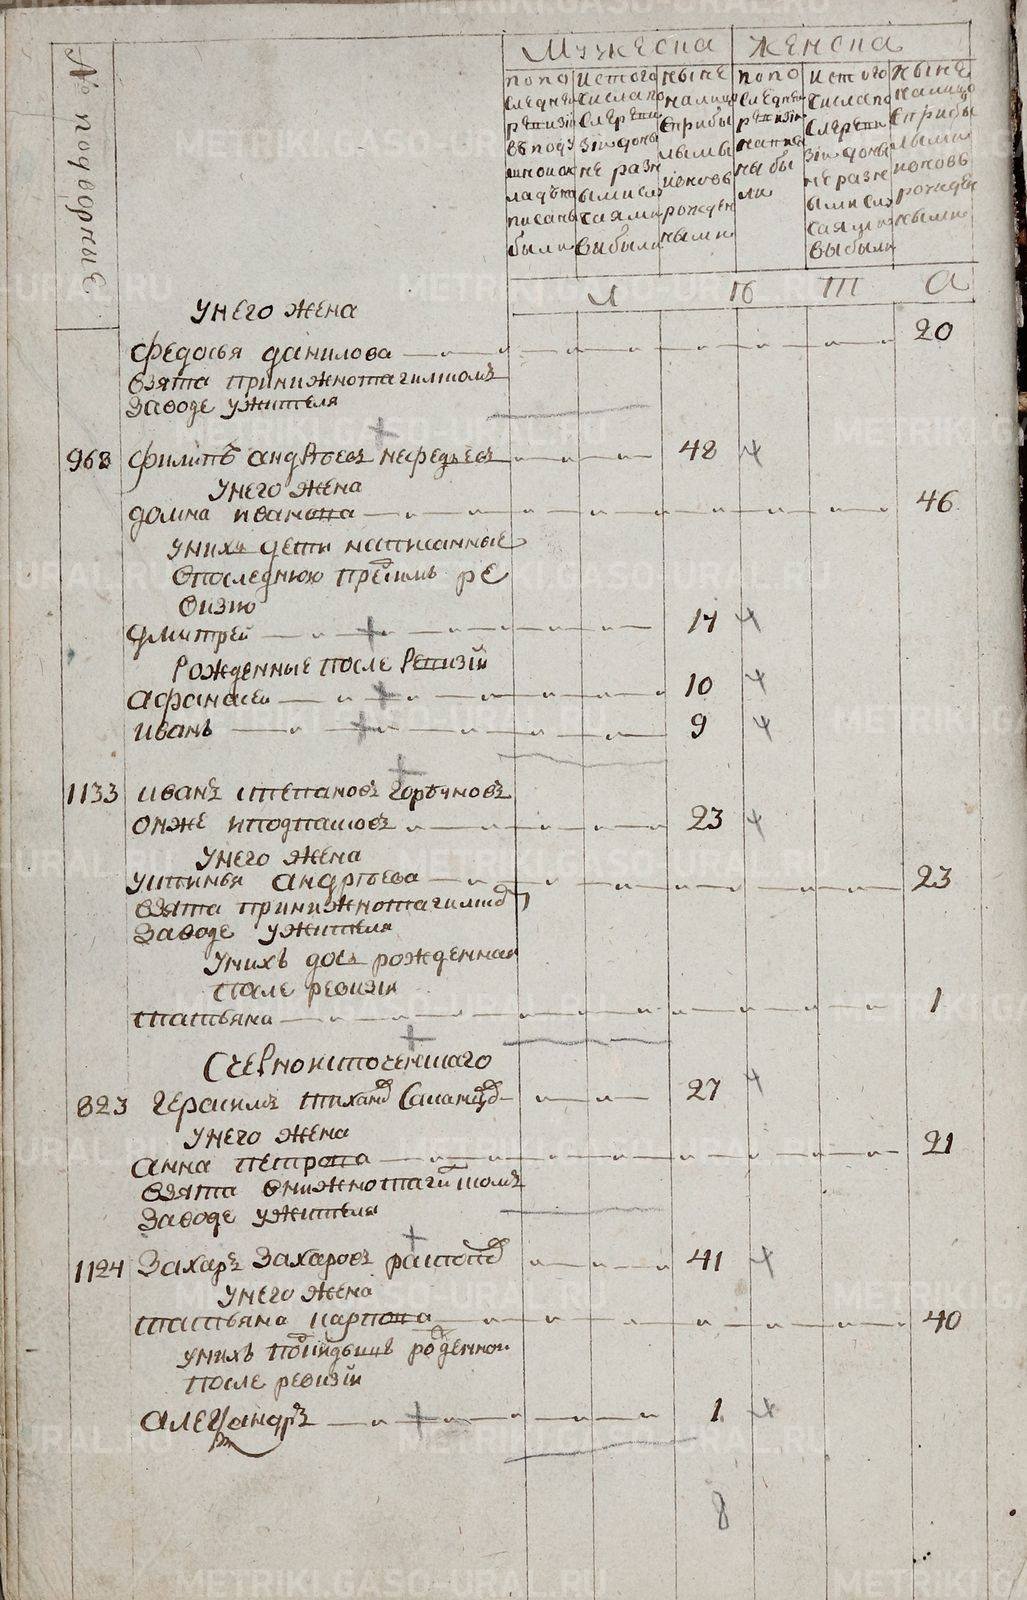 № подворные
Мужеска
женска
попо
следней
ревизіи
в подушной
окладъ на
писаны
были
истого
числа по
сле реви
зіи доны
не разн
ыми слу
чаями
выбыли
ныне
налицо
сприбы
лыми
и вновь
рожден
ными
попо
следней
ревизіи
написа
ны бы
ли
исто го
числа по
сле реви
зіи доны
не разн
ыми слу
чаями
выбыли
ныне
налицо
сприбы
лыми
ивновь
рожден
ными
л
ѣ
т
а
унего жена
федосья данилова 20
взята принижнотагилском
заводе ужителя
963 филипъ андреевъ мефедьевъ 48
унего жена
домна иванова 46
униxъ дети написанные
впоследнюю пред симъ ре
визию
дмитрей 14
Рожденные после Ревизіи
афанасей 10
иванъ 9
1133 иванъ степановъ горбуновъ
онже 23
унего жена
устинья андреева 23
взята принижнотагилском
заводе ужителя
униxъ дочь рожденная
после ревизіи
татьяна 1
С черноисточенскаго
823 герасимъ тихановъ 27
унего жена
анна петрова 21
взята внижнотагилскомъ
заводе ужителя
1124 Захаръ Захаровъ 41
унего жена
татьяна карпова 40
униxъ рожденной
после ревизіи
александръ 1
8
METRIKI.GASO-URAL.RU